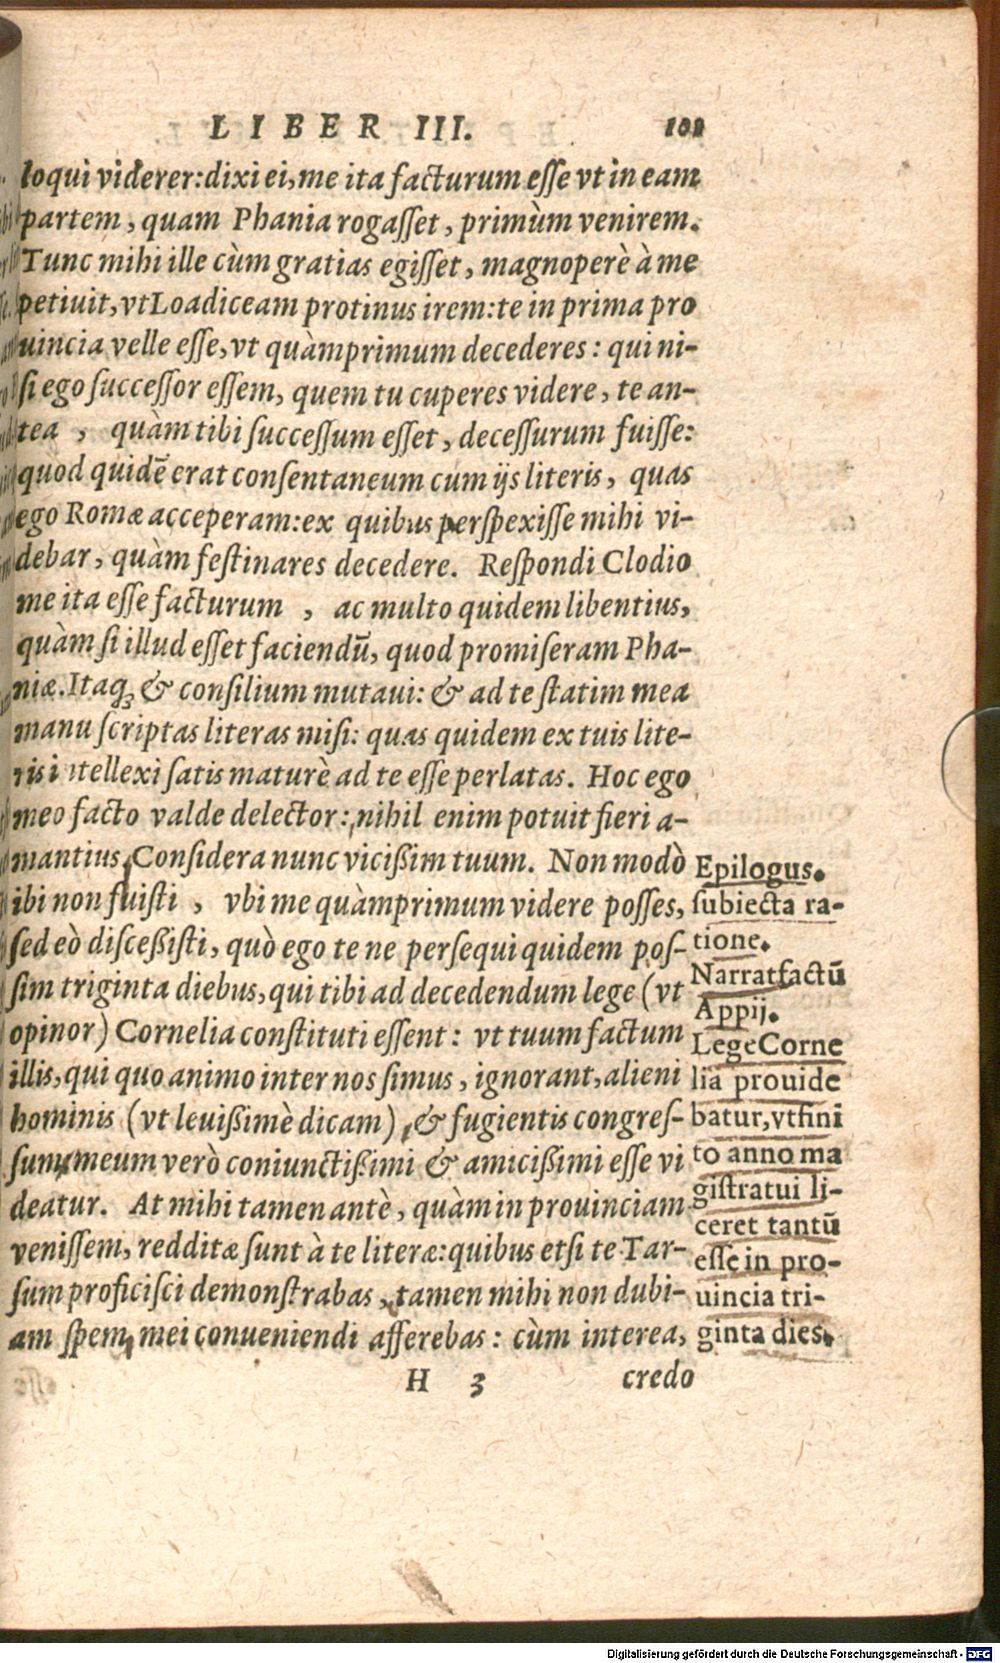 LIBER III. 101
loqui viderer:dixi ei,me ita facturum eſſe vt in eam
partem, quam Phania rogaſſet, primùm venirem.
Tunc mihi ille cùm gratias egiſſet, magnoperè à me
petiuit, vt Loadiceam protinus irem:te in prima pro
uincia velle eſſe,vt quàmprimum decederes: qui ni-
ſi ego ſucceſſor eſſem, quem tu cuperes videre, te an-
tea , quàm tibi ſucceſſum eſſet, deceſſurum fuiſſe:
quod quidē erat conſentaneum cum ijs literis, quas
ego Romæ acceperam:ex quibus perſpexiſſe mihi vi-
debar, quàm feſtinares decedere. Reſpondi Clodio
me ita eſſe facturum , ac multo quidem libentius,
quàm ſi illud eſſet faciendū, quod promiſeram Pha-
niæ. Itaq; & conſilium mutaui: & ad te ſtatim mea
manu ſcriptas literas miſi: quas quidem ex tuis lite-
ris intellexi ſatis maturè ad te eſſe perlatas. Hoc ego
meo facto valde delector: nihil enim potuit fieri a-
mantius. Conſidera nunc vicißim tuum. Non modò
ibi non fuiſti , vbi me quàmprimum videre poſſes,
ſed eò diſceßiſti, quò ego te ne perſequi quidem poſ-
ſim triginta diebus,qui tibi ad decedendum lege (vt
opinor) Cornelia conſtituti eſſent: vt tuum factum
illis,qui quo animo inter nos ſimus, ignorant,alieni
hominis (vt leuißimè dicam), & fugientis congreſ-
ſum, meum verò coniunctißimi & amicißimi eſſe vi
deatur. At mihi tamen antè, quàm in prouinciam
veniſſem, redditæ ſunt à te literæ:quibus etſi te Tar-
ſum proficiſci demonſtrabas, tamen mihi non dubi-
am ſpem mei conueniendi afferebas: cùm interea,
H 3 credo
Epilogus.
ſubiecta ra-
tione.
Narrat factū
Appij.
Lege Corne
lia prouide
batur,vt fini
to anno ma
giſtratui li-
ceret tantū
eſſe in pro-
uincia tri-
ginta dies.
Digitalisierung gefördert durch die Deutsche Forschungsgemeinschaft - DFG